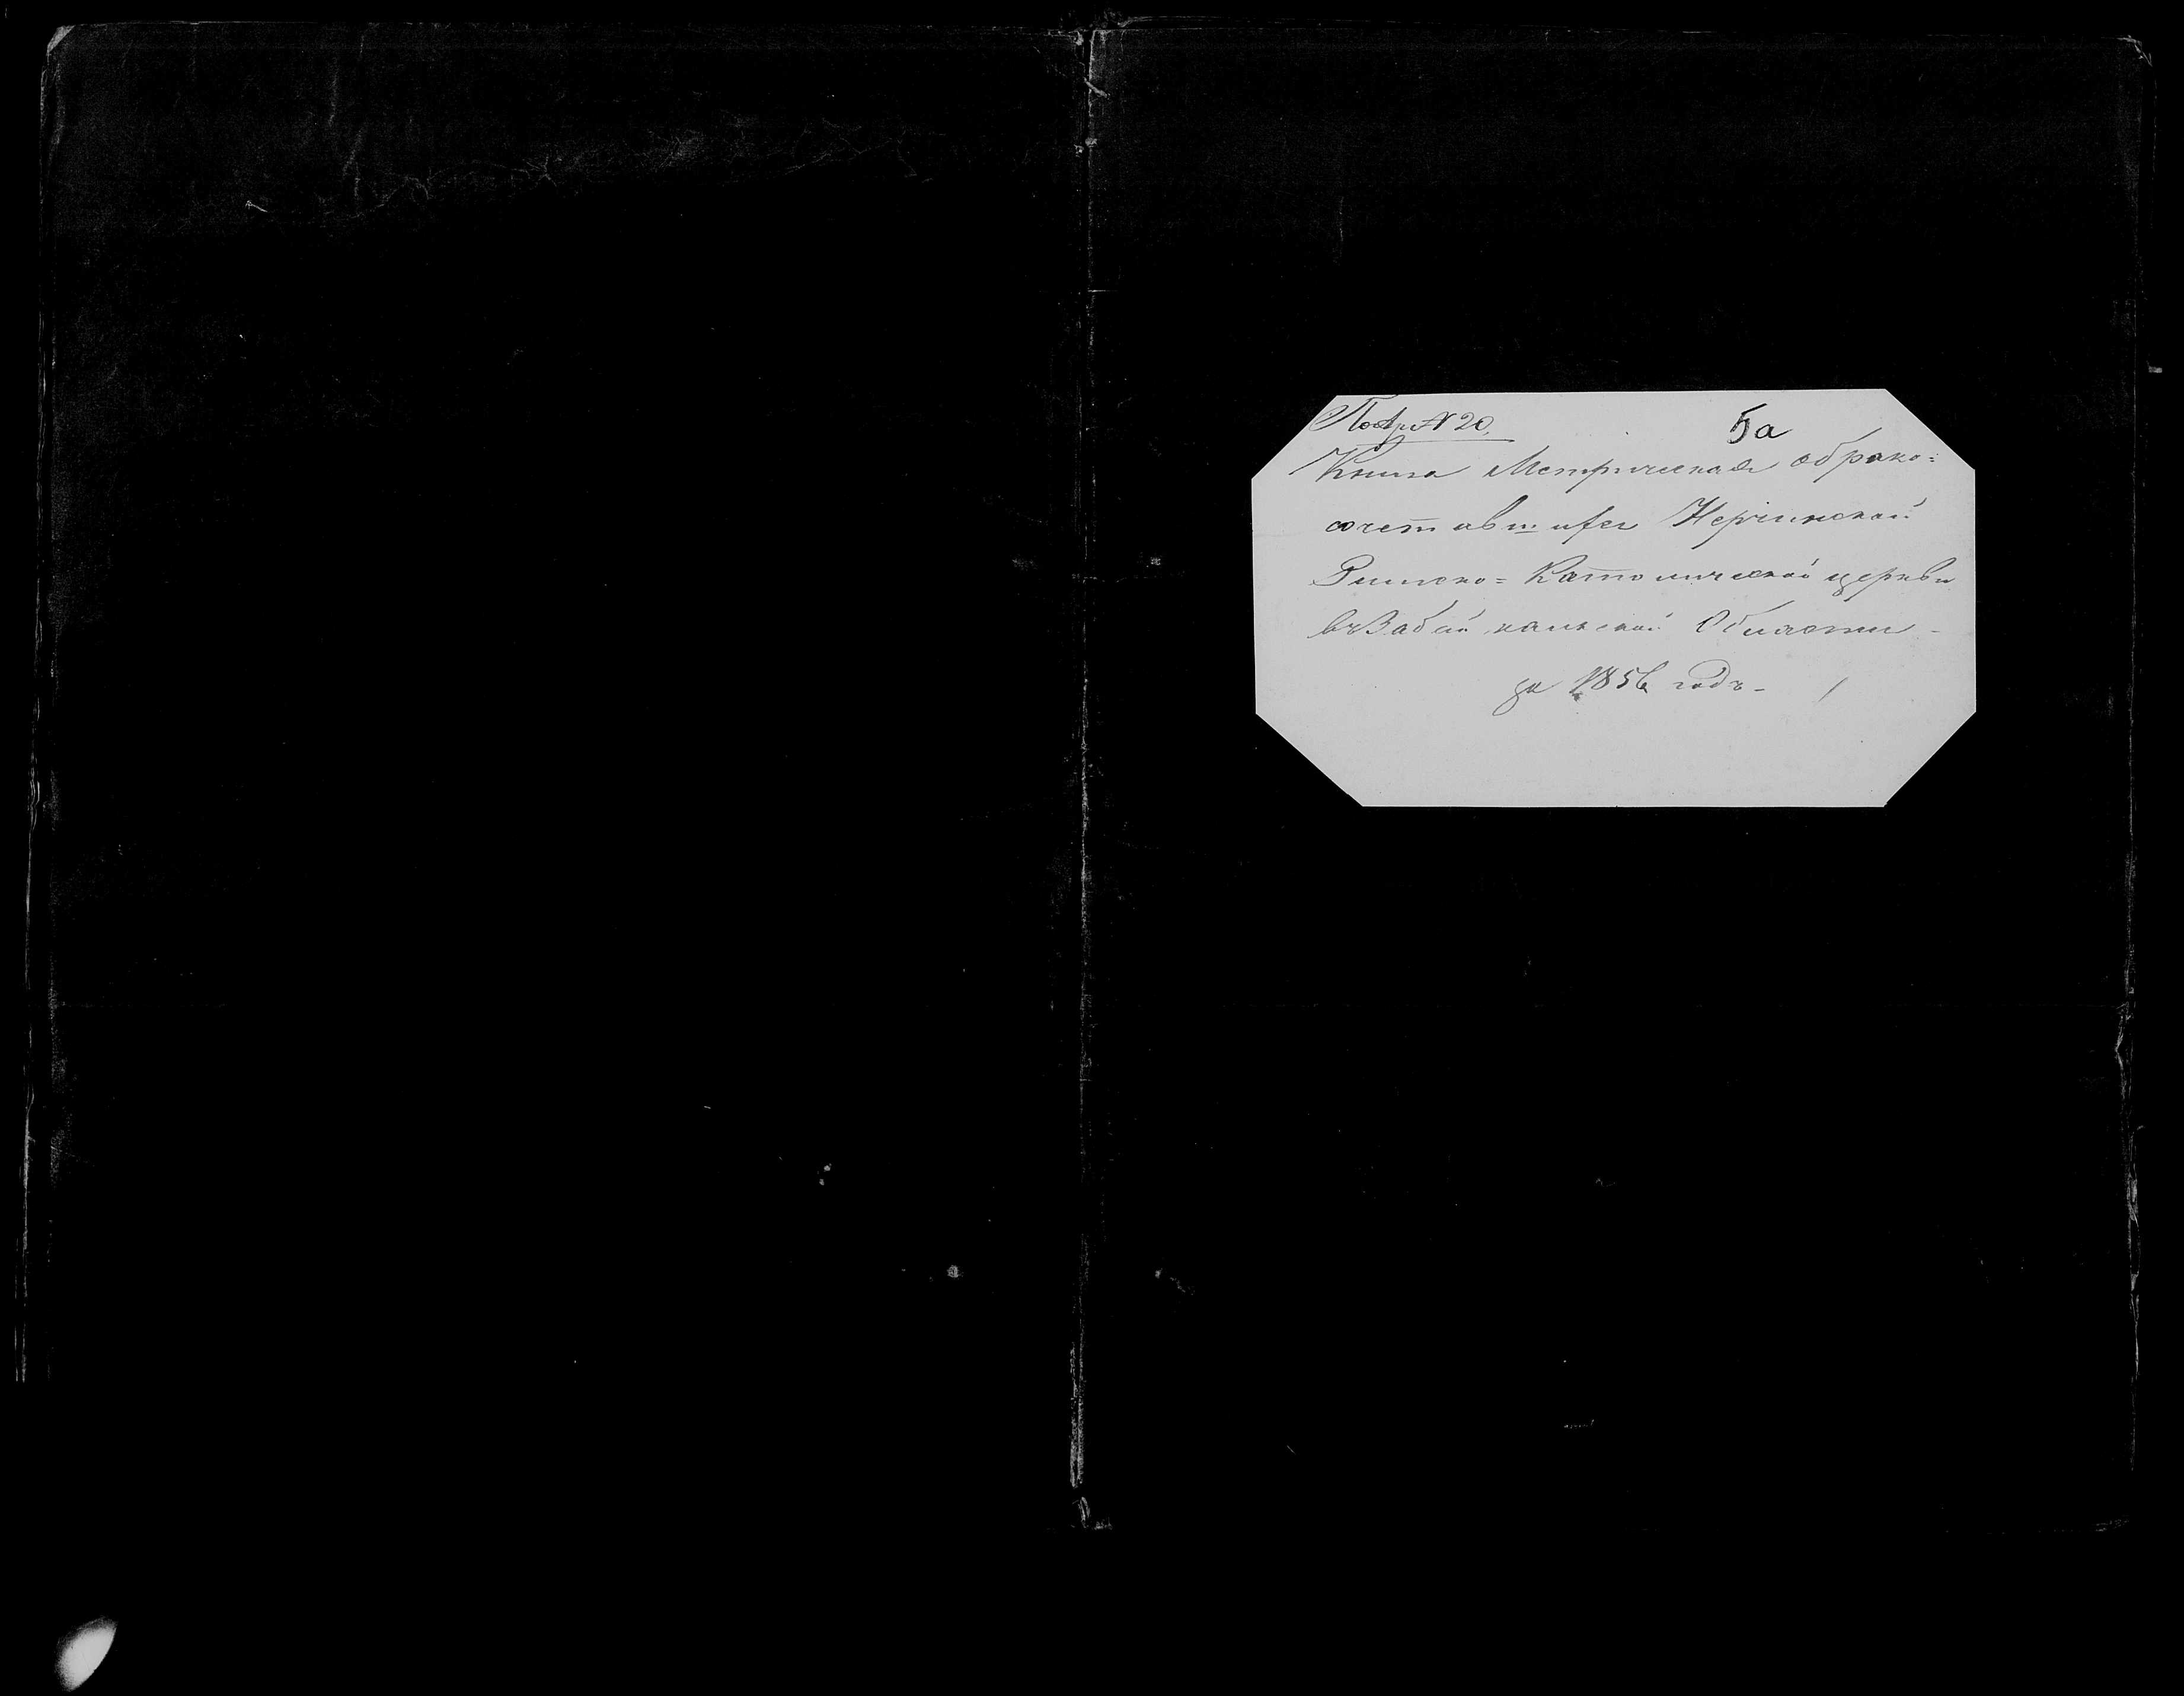 № 20. 5а
Книга Метрическая о брако=
сочетавшихся Нерчинской
Римско=Католической церкви
въ Забайкальской Области -
за 1856 годъ -